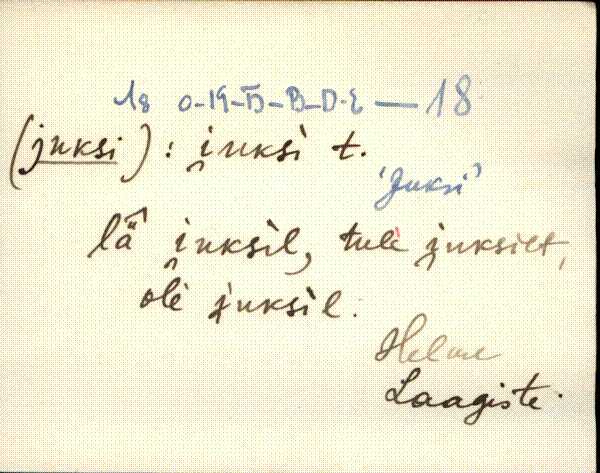 18 0-19-Б-B-D-E — 18
(juksi): i̯uksi t.
'Juksi'
lä̂ i̯uksil, tulè i̯uksilt,
olè i̯uksil.
Helme
Laagiste.